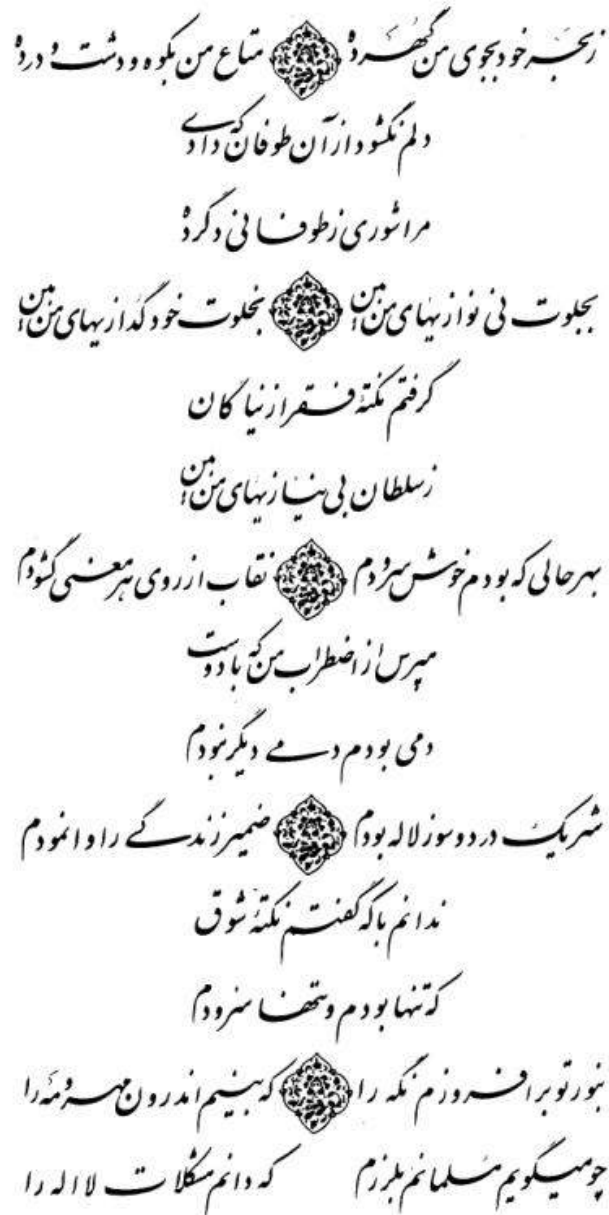 ز بحر خود بجوی من گهر ده متاع من بکوه و دشت و در ده
دلم نگشود از آن طوفان که دادی
مرا شوری ز طوفانی دگر ده
بجلوت نی نوازیهای من بین بخلوت خود گدازیهای من بین
گرفتم نکتهٔ فقر از نیاگان
ز سلطان بی نیازیهای من بین
بهر حالی که بودم خوش سرودم نقاب از روی هر معنی گشودم
مپرس از اضطراب من که با دوست
دمی بودم دمی دیگر نبودم
شریک درد و سوز لاله بودم ضمیر زندگی را وانمودم
ندانم با که گفتم نکتهٔ شوق
که تنها بودم و تنها سرودم
بنور تو برافروزم نگه را که بینم اندرون مهر و مه را
چو میگویم مسلمانم بلرزم که دانم مشکلات لااله را